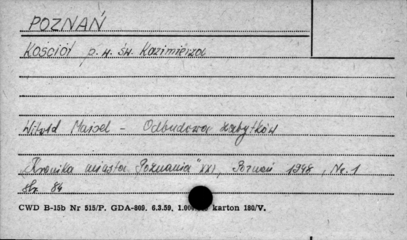 POZNAŃ
Kościół p.w. św. Kazimierza
Witold Maisel – Odbudowa zabytków
"Kronika miasta Poznania" XXI, Poznań 1948, Nr. 1
str. 84
CWD B-15b Nr 515/P. GDA-809. 6.3.59. karton 180/V.